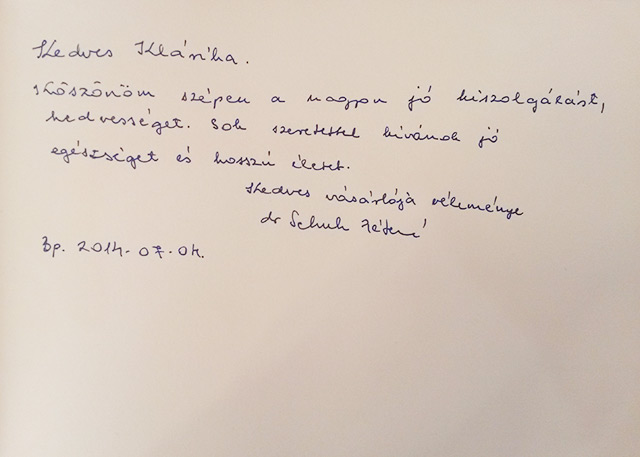 Kedves Klárika.
Köszönöm szépen a nagyon jó kiszolgálást,
kedvességet. Sok szeretettel kívánok jó
egészséget és hosszú életet.
Kedves vásárlója véleménye
dr Schuh
Bp. 2014.07.04.